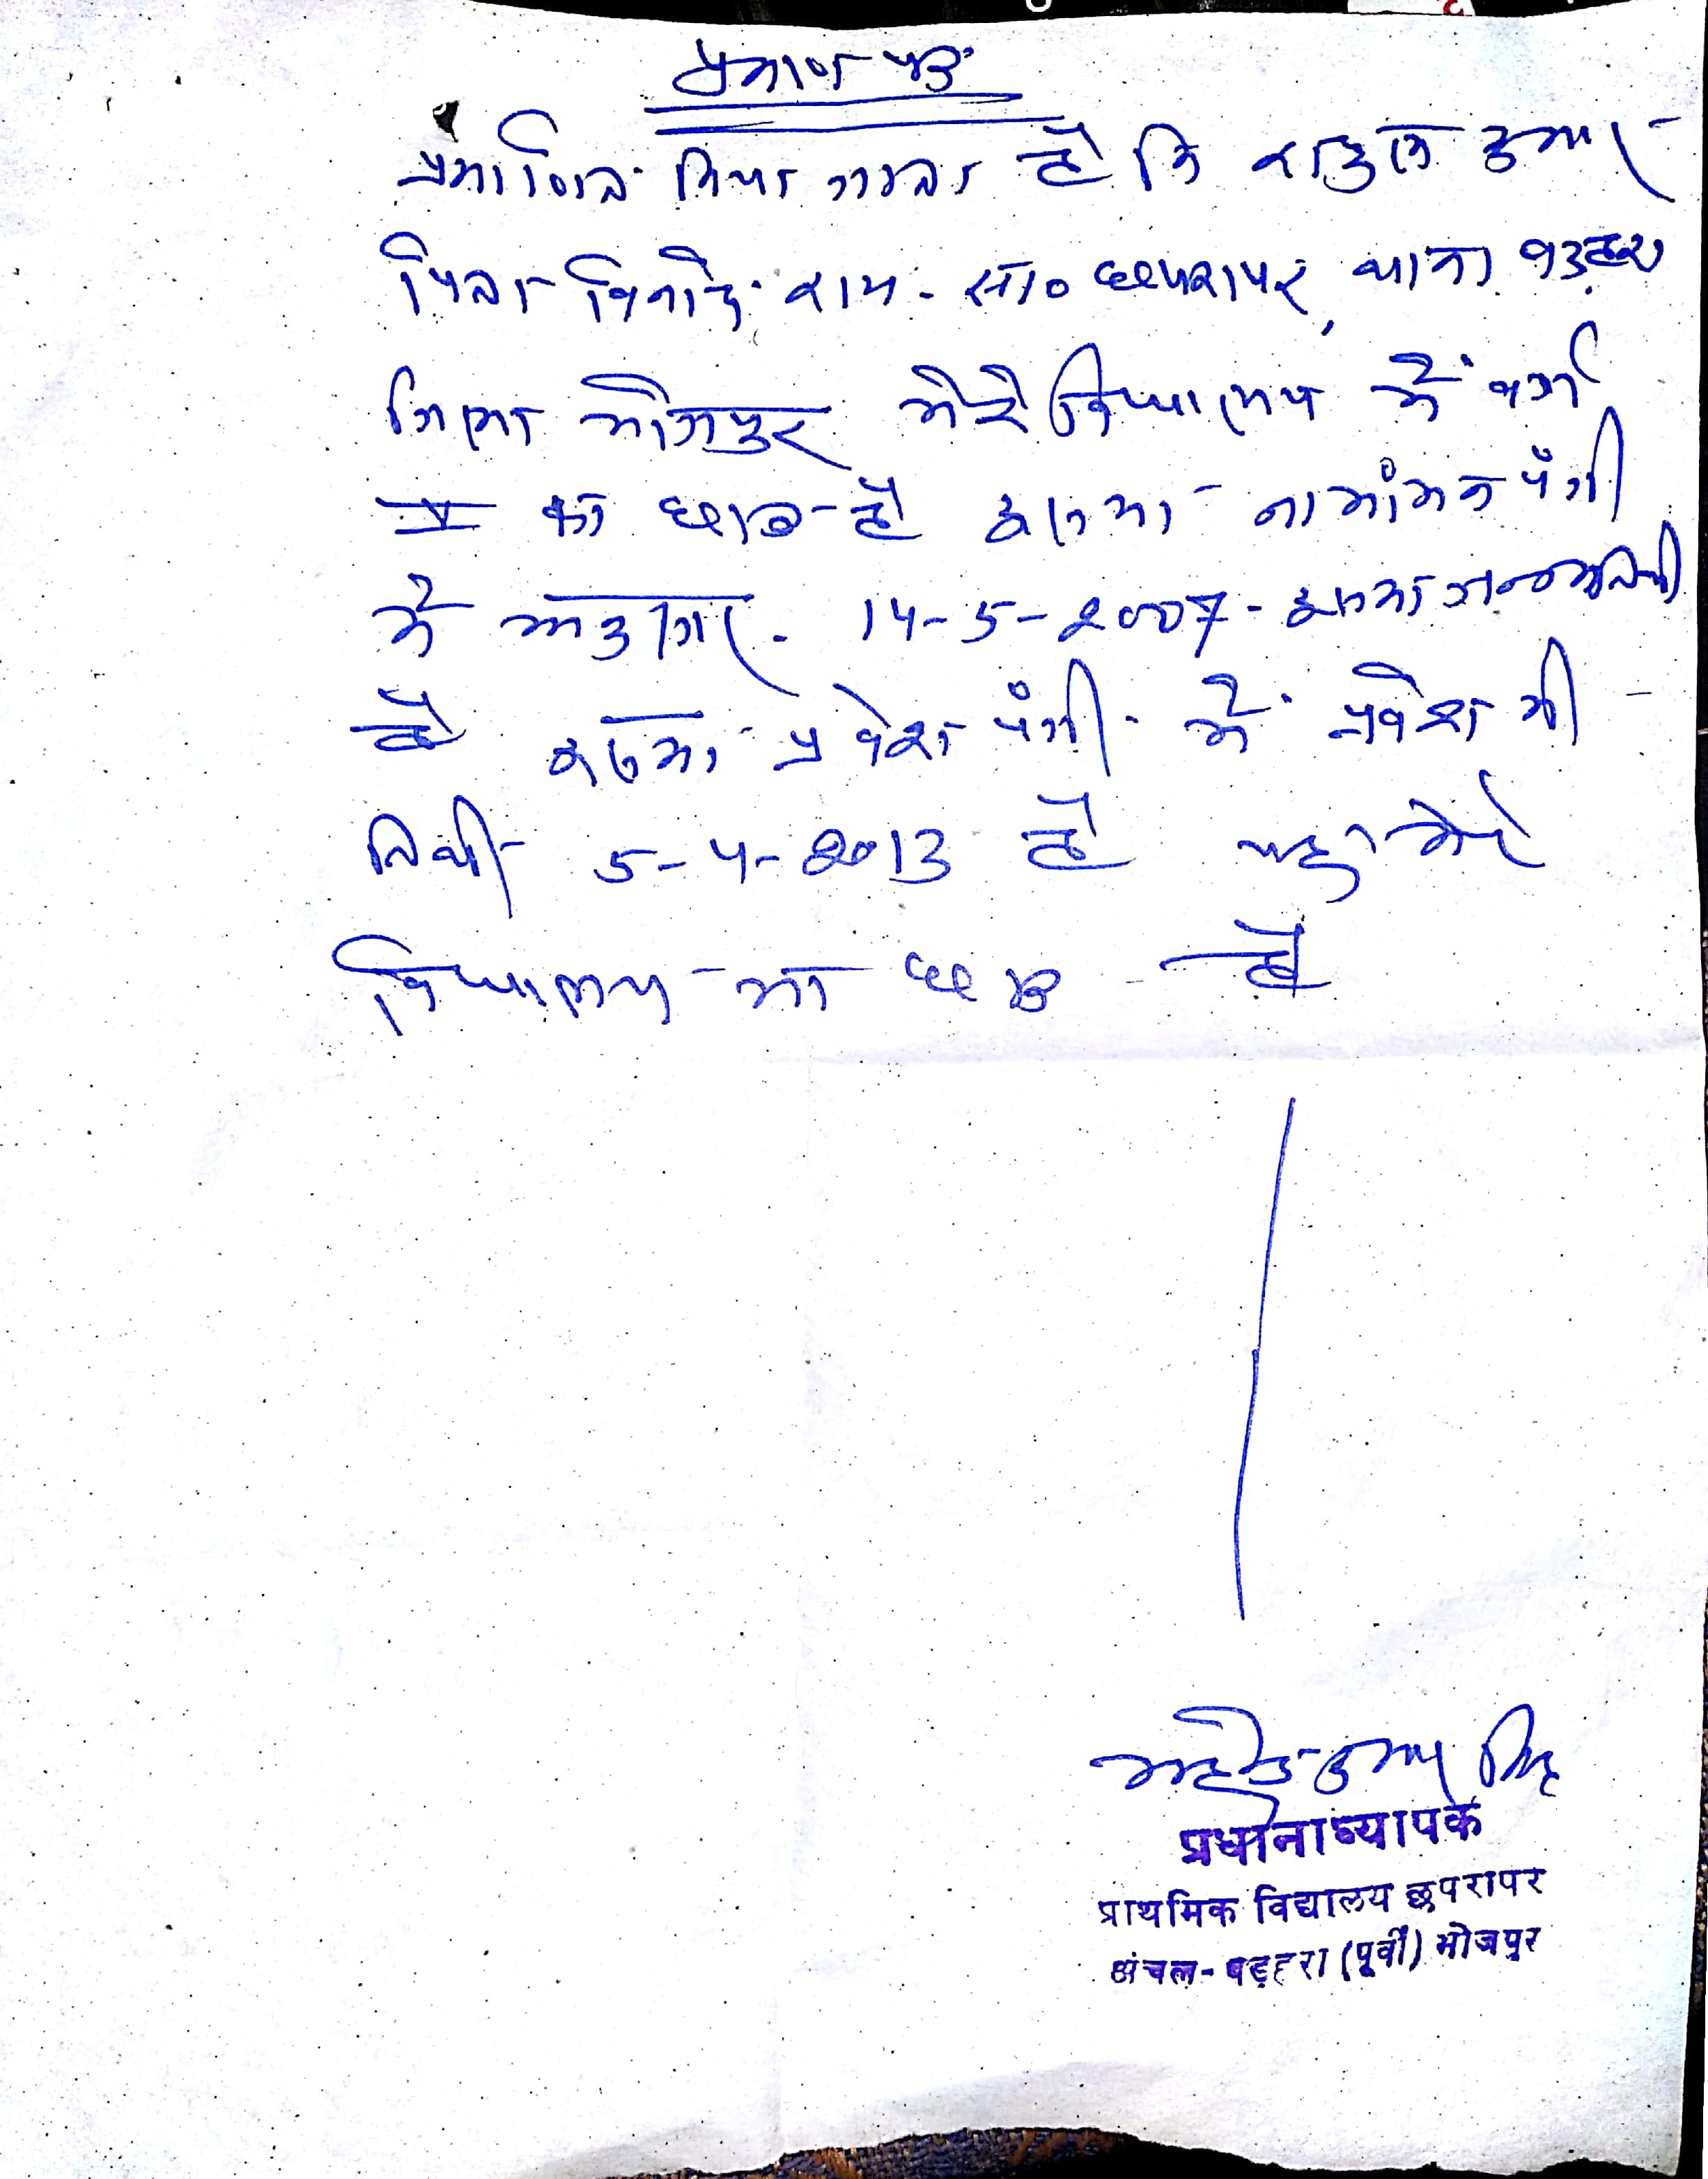 प्रमाण पत्र
प्रमाणित किया जाता है कि राहुल कुमार
पिता विनोद राम. सा० छपरापर, थाना बड़हरा
जिला भोजपुर मेरे विद्यालय में वर्ग
V का छात्र है इसका नामांकन पंजी
में अनुसार. 14-5-2007 - इसका जन्मतिथी
है इसका प्रवेश पंजी में प्रवेश की
तिथी 5-4-2013 है यह मेरे
विद्यालय का छात्र है
कुमार सिंह
प्रधानाध्यापक
प्राथमिक विद्यालय छपरापर
अंचल-बड़हरा (पूर्वी) भोजपुर